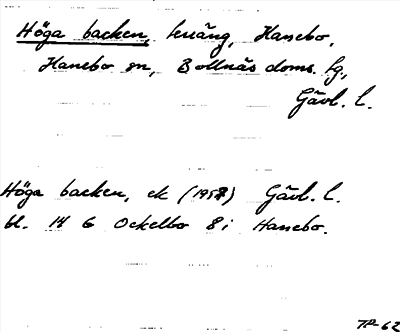 Höga backen, terräng, Hanebo,
Hanebo sn, Bollnäs doms. fg,
Gävl. l.
Höga backen, ek (1957) Gävl. l.
bl. 14 G Ockelbo 8 i Hanebo.
TP-62